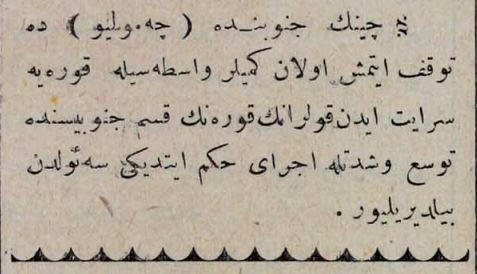 چينك جنوبنده ( چه‌مولپو ) ده
توقف ايتمش اولان كميلر واسطه‌سيله قوره‌يه
سرايت ايدن قولرانك قوره‌نك قسم جنوبيسنده
توسع وشدتله اجراى حكم ايتديكى سه‌ئولدن
بيلديريليور .